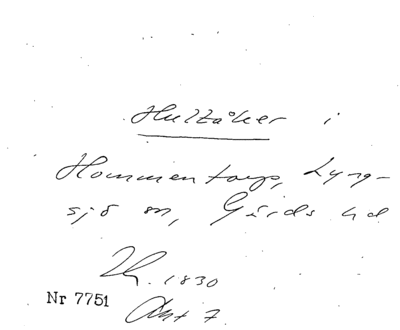 Hultåker i
Hommentorp, Lyng-
sjö sn, Gärds hd
1830
Nr 7751
Akt 7